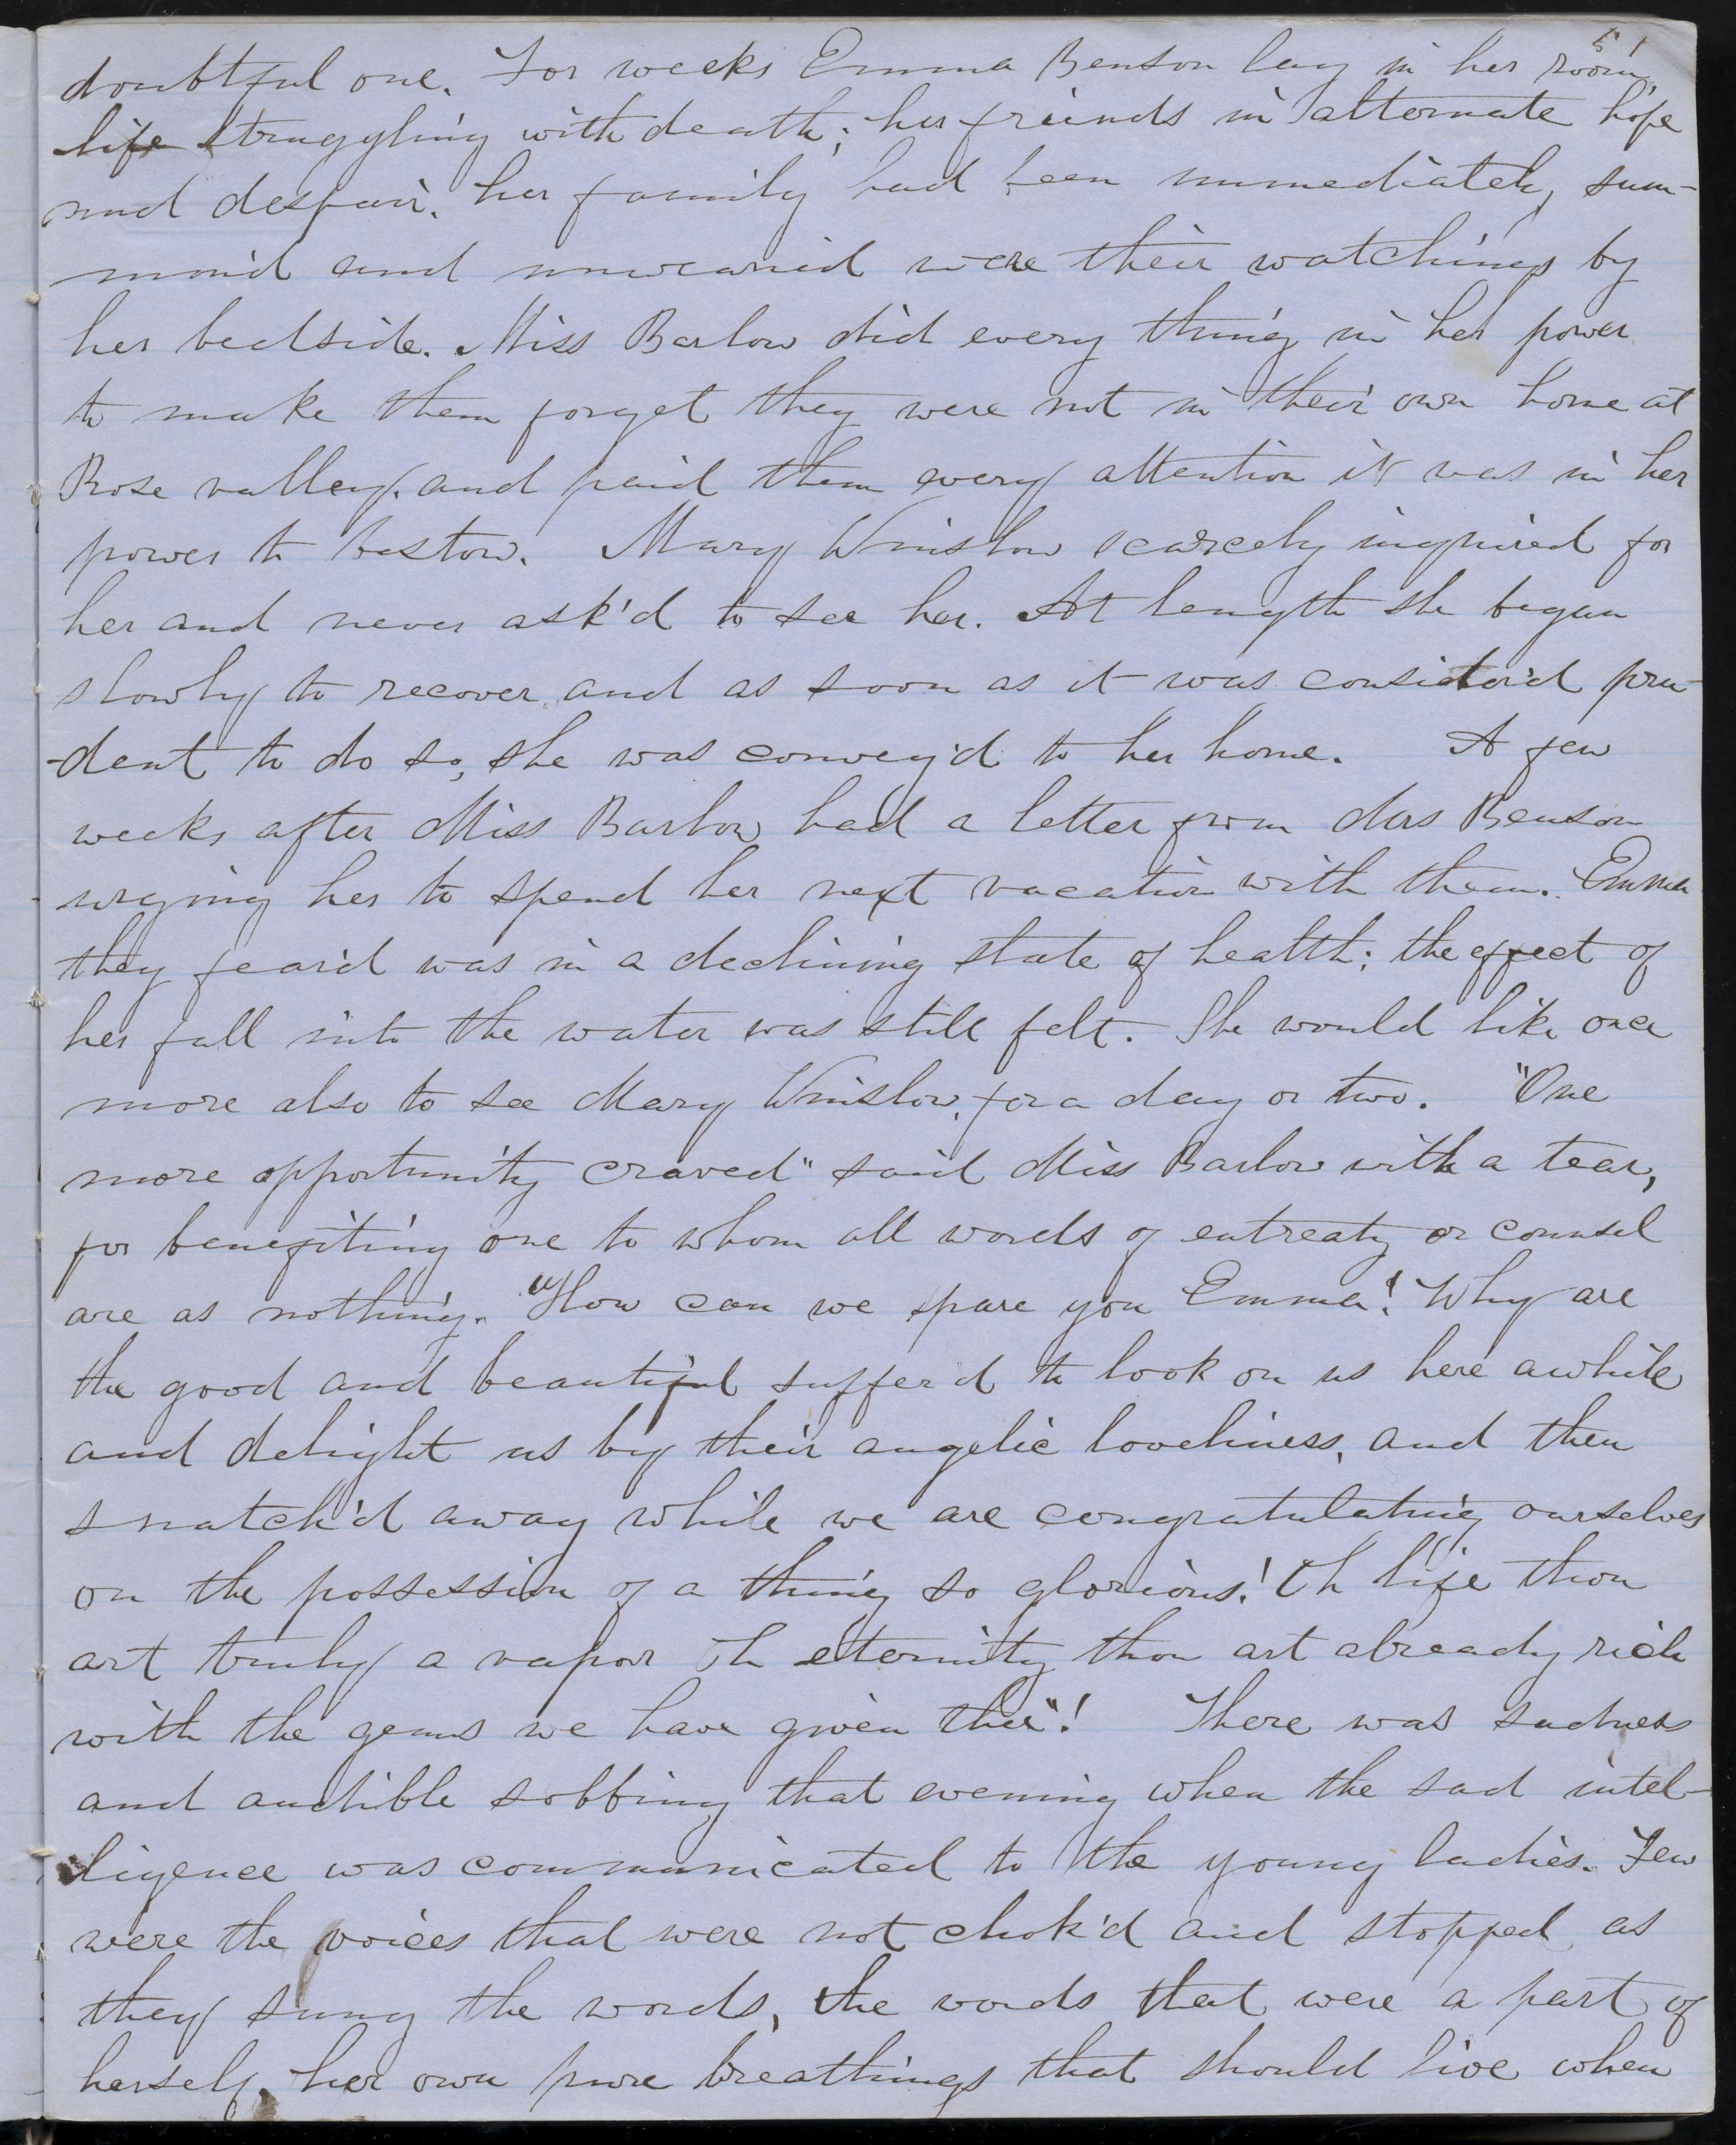 51
doubtful one. For weeks Emma Benson lay in her room,
life struggling with death; her friends in alternate hope
and despair. her family had been immediately sum-
mon'd and unwearied were their watchings by
her bedside. Miss Barlow did every thing in her power
to make them forget they were not in their own home at
Rose valley, and paid them every attention it was in her
power to bestow. Mary Winslow scarcely inquired for
her and never ask'd to see her. At length she began
slowly to recover, and as soon as it was consider'd pru-
-dent to do so, she was convey'd to her home. A few
weeks after Miss Barlow had a letter from Mrs Benson
urging her to spend her next vacation with them. Emma
they fear'd was in a declining state of health; the effect of
her fall into the water was still felt. She would like once
more also to see Mary Winslow, for a day or two. "One
more opportunity craved" said Miss Barlow with a tear,
for benefiting one to whom all words of entreaty or counsel
are as nothing. "How can we spare you Emma! Why are
the good and beautiful suffer'd to look on us here awhile
and delight us by their angelic loveliness, and then
snatch'd away while we are congratulating ourselves
on the possession of a thing so glorious! Oh life thou
art truly a vapor Oh eternity thou art already rich
with the gems we have given thee"! There was sadness
and audible sobbing that evening when the sad intel-
ligence was communicated to the young ladies. Few
were the voices that were not chok'd and stopped as
they sung the words, the words that were a part of
herself, her own pure breathings that should live when